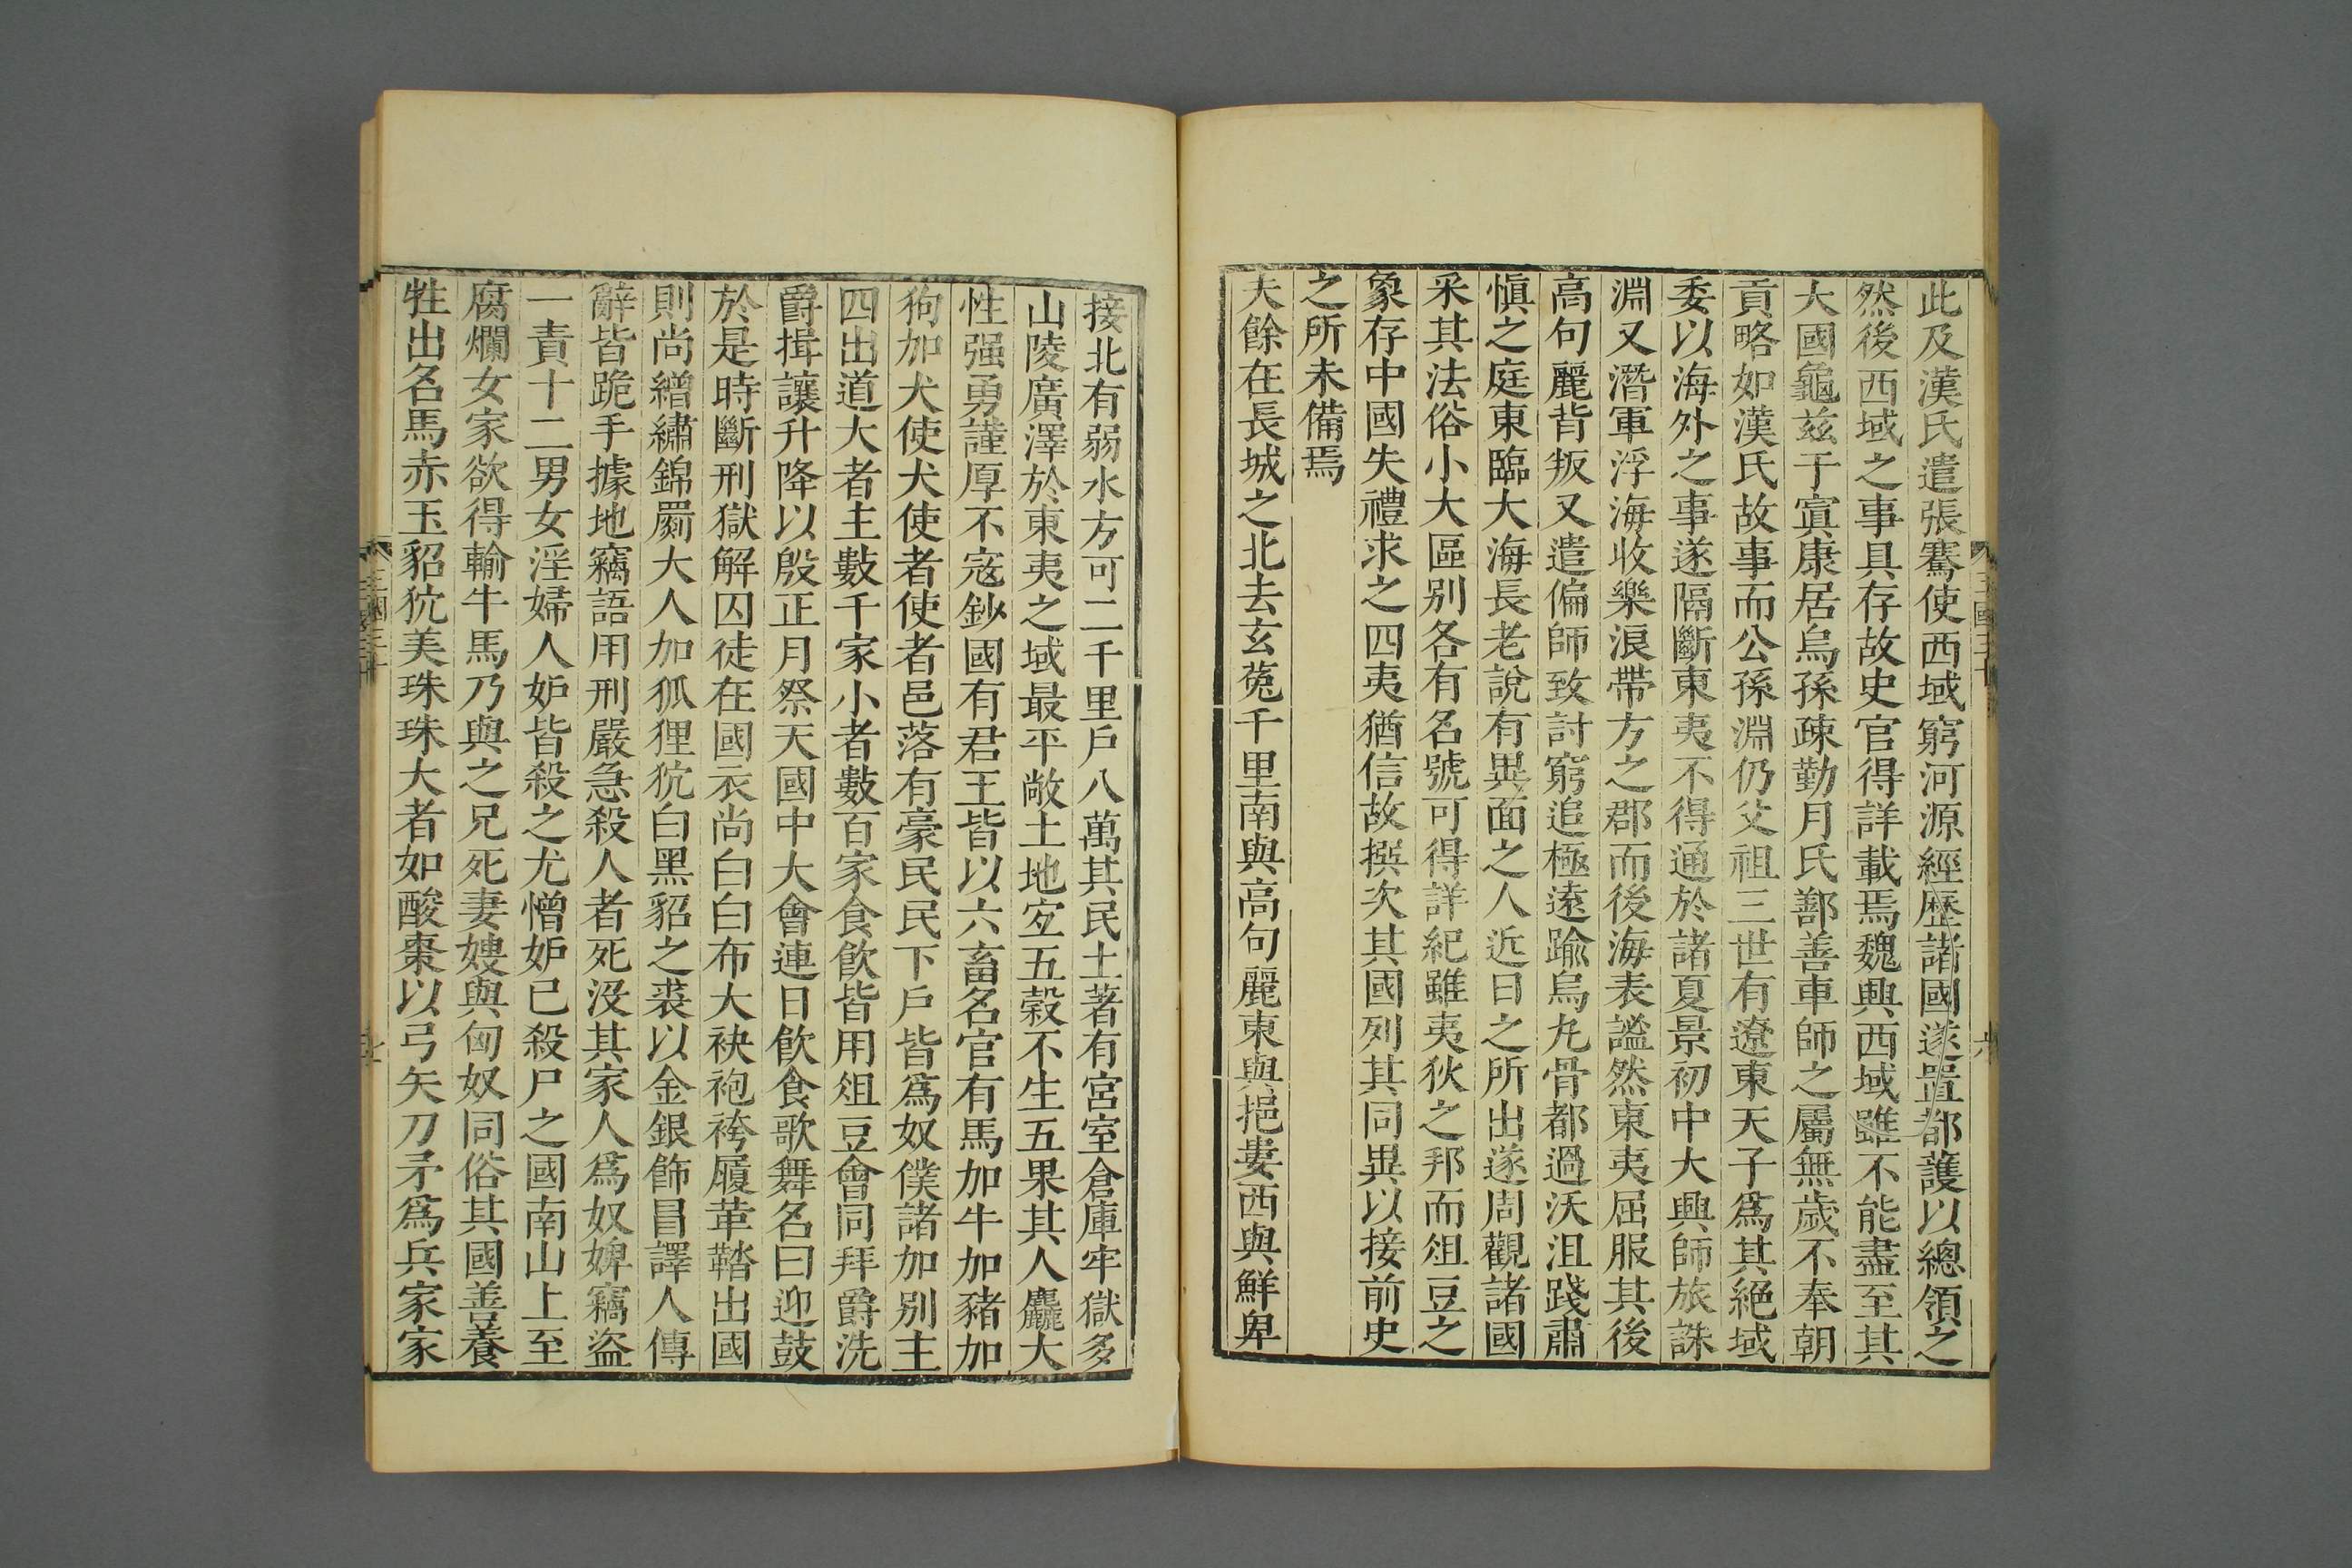 此及漢氏遣張騫使西域窮河源經歷諸國遂置都護以總領之
然後西域之事具存故史官得詳載焉魏興西域雖不能盡至其
大國龜兹于寘康居烏孫疎勤月氏鄯善車師之屬無歲不奉朝
貢略如漢氏故事而公孫淵仍父祖三世有遼東天子爲其絕域
委以海外之事遂隔斷東夷不得通於諸夏景初中大興師旅誅
淵又潛軍浮海收樂浪帶方之郡而後海表謐然東夷屈服其後
高句麗背叛又遣偏師致討窮追極遠踰烏丸骨都過沃沮踐肅
慎之庭東臨大海長老說有異面之人近日之所出遂周觀諸國
采其法俗小大區別各有名號可得詳紀雖夷狄之邦而俎豆之
象存中國失禮求之四夷猶信故撰次其國列其同異以接前史
之所未備焉
夫餘在長城之北去玄菟千里南與高句麗東與挹婁西與鮮卑
接北有弱水方可二千里戶八萬其民土著有宮室倉庫牢獄多
山陵廣澤於東夷之域最平敞土地宐五穀不生五果其人麤大
性强勇謹厚不寇鈔國有君王皆以六畜名官有馬加牛加豬加
狗加犬使犬使者使者邑落有豪民民下戶皆爲奴僕諸加別主
四出道大者主數千家小者數百家食飲皆用俎豆會同拜爵洗
爵揖讓升降以殷正月祭天國中大會連日飲食歌舞名曰迎鼓
於是時斷刑獄解囚徒在國衣尚白白布大袂袍袴履革鞜出國
則尚繒繡錦罽大人加狐狸狖白黑貂之裘以金銀飾冒譯人傳
辭皆跪手據地竊語用刑嚴急殺人者死沒其家人爲奴婢竊盜
一責十二男女淫婦人妒皆殺之尤憎妒已殺尸之國南山上至
腐爛女家欲得輸牛馬乃與之兄死妻嫂與匈奴同俗其國善養
牲出名馬赤玉貂狖美珠珠大者如酸棗以弓矢刀矛爲兵家家